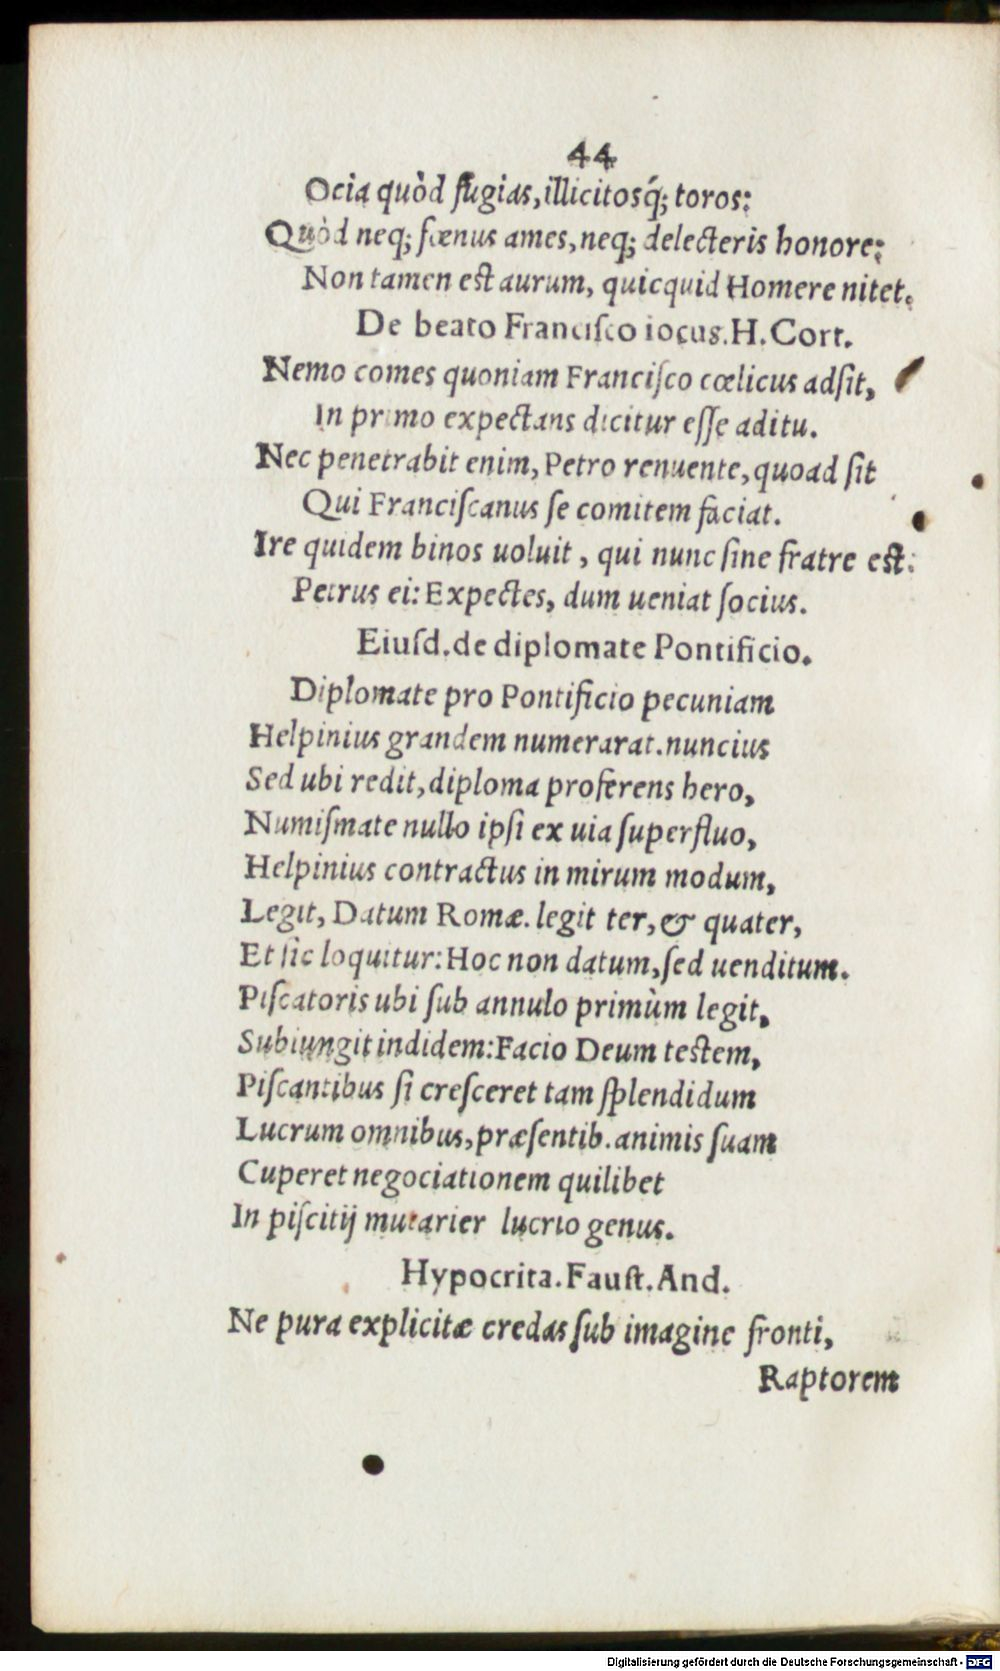 44
Ocia quòd fugias, illicitosq́; toros:
Quòd neq; fœnus ames, neq; delecteris honore:
Non tamen est aurum, quicquid Homere nitet.
De beato Franciſco iocus. H. Cort.
Nemo comes quoniam Franciſco cœlicus adſit,
In primo expectans dicitur eſſe aditu.
Nec penetrabit enim, Petro renuente, quoad ſit
Qui Franciſcanus ſe comitem faciat.
Ire quidem binos uoluit, qui nunc ſine fratre est:
Petrus ei: Expectes, dum ueniat ſocius.
Eiuſd. de diplomate Pontificio.
Diplomate pro Pontificio pecuniam
Helpinius grandem numerarat. nuncius
Sed ubi redit, diploma proferens hero,
Numiſmate nullo ipſi ex uia ſuperfluo,
Helpinius contractus in mirum modum,
Legit, Datum Romæ. legit ter, & quater,
Et ſic loquitur: Hoc non datum, ſed uenditum.
Piſcatoris ubi ſub annulo primùm legit,
Subiungit indidem: Facio Deum testem,
Piſcantibus ſi creſceret tam ſplendidum
Lucrum omnibus, præſentib. animis ſuam
Cuperet negociationem quilibet
In piſcitij mutarier lucrio genus.
Hypocrita. Fauſt. And.
Ne pura explicitæ credas ſub imagine fronti,
Raptorem
Digitalisierung gefördert durch die Deutsche Forschungsgemeinschaft - DFG